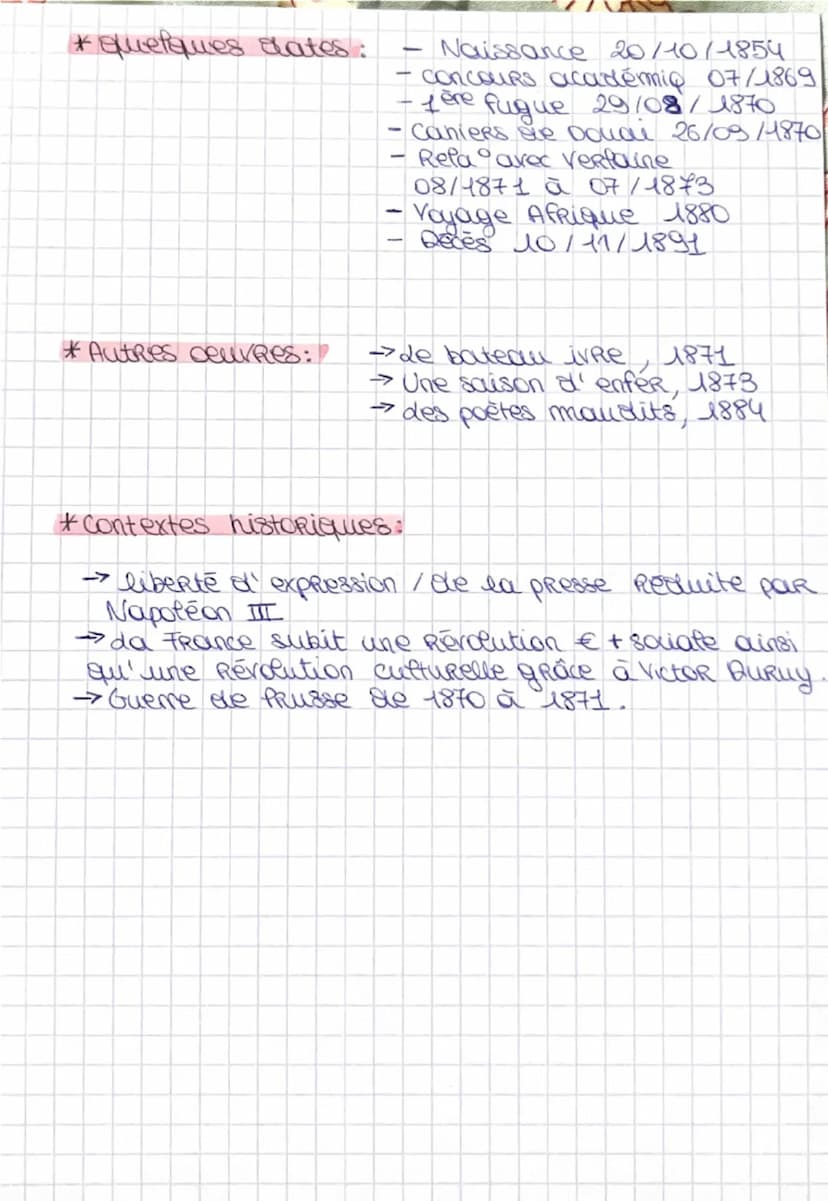 * Quelques dates : - Naissance 20/10/1854
- concours académiq 07/1869
- 1ère fugue 29/08/1870
- Cahiers de Douai 26/09/1870
- Rela° avec Verlaine
08/1871 à 07/1873
- Voyage Afrique 1880
- Décès 10/11/1891
* Autres oeuvres : → Le bateau ivre, 1871
→ Une saison d'enfer, 1873
→ Les poètes maudits, 1884
* Contextes historiques :
→ liberté d'expression / de la presse réduite par
Napoléon III
→ La France subit une révolution € + sociale ainsi
qu'une révolution culturelle grâce à Victor Duruy.
→ Guerre de Prusse de 1870 à 1871.